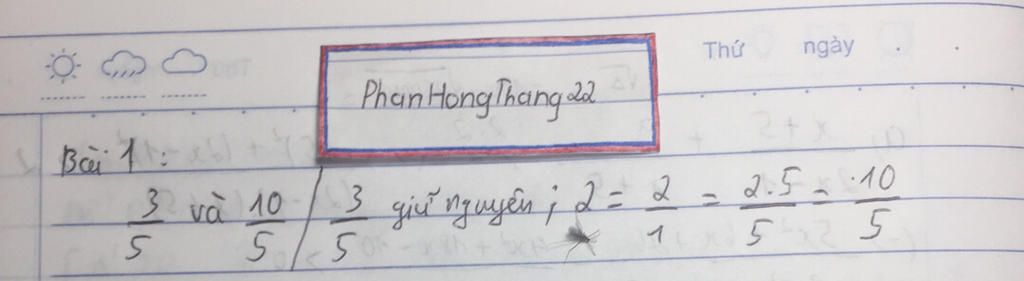 Thứ ngày . .
PhanHongThang22
Bài 1 :
3/5 và 10/5 / 3/5 giữ nguyên ; 2 = 2/1 = 2.5/5 = 10/5